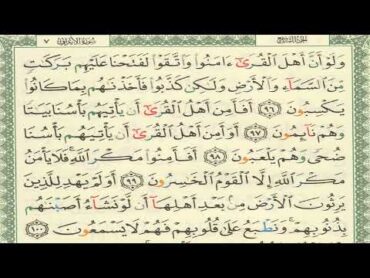 سورة الأعراف ٧ الجزء التاسع
وَلَوْ أَنَّ أَهْلَ الْقُرَىٰ ءَامَنُوا وَاتَّقَوْا لَفَتَحْنَا عَلَيْهِم بَرَكَٰتٍ
مِّنَ السَّمَآءِ وَالْأَرْضِ وَلَٰكِن كَذَّبُوا فَأَخَذْنَٰهُم بِمَا كَانُوا
يَكْسِبُونَ ٩٦ أَفَأَمِنَ أَهْلُ الْقُرَىٰٓ أَن يَأْتِيَهُم بَأْسُنَا بَيَٰتًا
وَهُمْ نَآئِمُونَ ٩٧ أَوَأَمِنَ أَهْلُ الْقُرَىٰٓ أَن يَأْتِيَهُم بَأْسُنَا
ضُحًى وَهُمْ يَلْعَبُونَ ٩٨ أَفَأَمِنُوا مَكْرَ اللَّهِ فَلَا يَأْمَنُ
مَكْرَ اللَّهِ إِلَّا الْقَوْمُ الْخَٰسِرُونَ ٩٩ أَوَلَمْ يَهْدِ لِلَّذِينَ
يَرِثُونَ الْأَرْضَ مِن بَعْدِ أَهْلِهَآ أَن لَّوْ نَشَآءُ أَصَبْنَٰهُم
بِذُنُوبِهِمْ وَنَطْبَعُ عَلَىٰ قُلُوبِهِمْ فَهُمْ لَا يَسْمَعُونَ ١٠٠